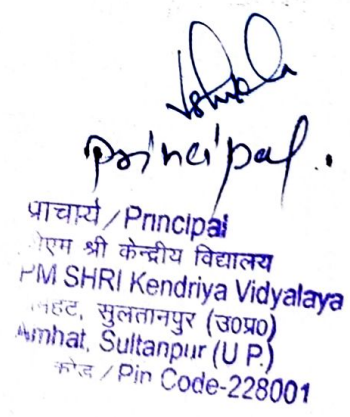 Principal.
प्राचार्य / Principal
पीएम श्री केन्द्रीय विद्यालय
PM SHRI Kendriya Vidyalaya
सुलतानपुर (उ०प्र०)
Amhat, Sultanpur (U P.)
कोड / Pin Code-228001